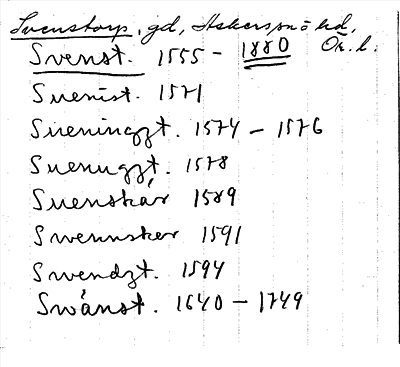 Svenstorp, gd, Askers sn o hd, Ör. l.
Svenst. 1555 – 1880
Suenist. 1571
Sueninggzt. 1574 – 1576
Suenugzt. 1578
Suenskär 1589
Swennsker 1591
Swendzt. 1594
Swånst. 1640 – 1749